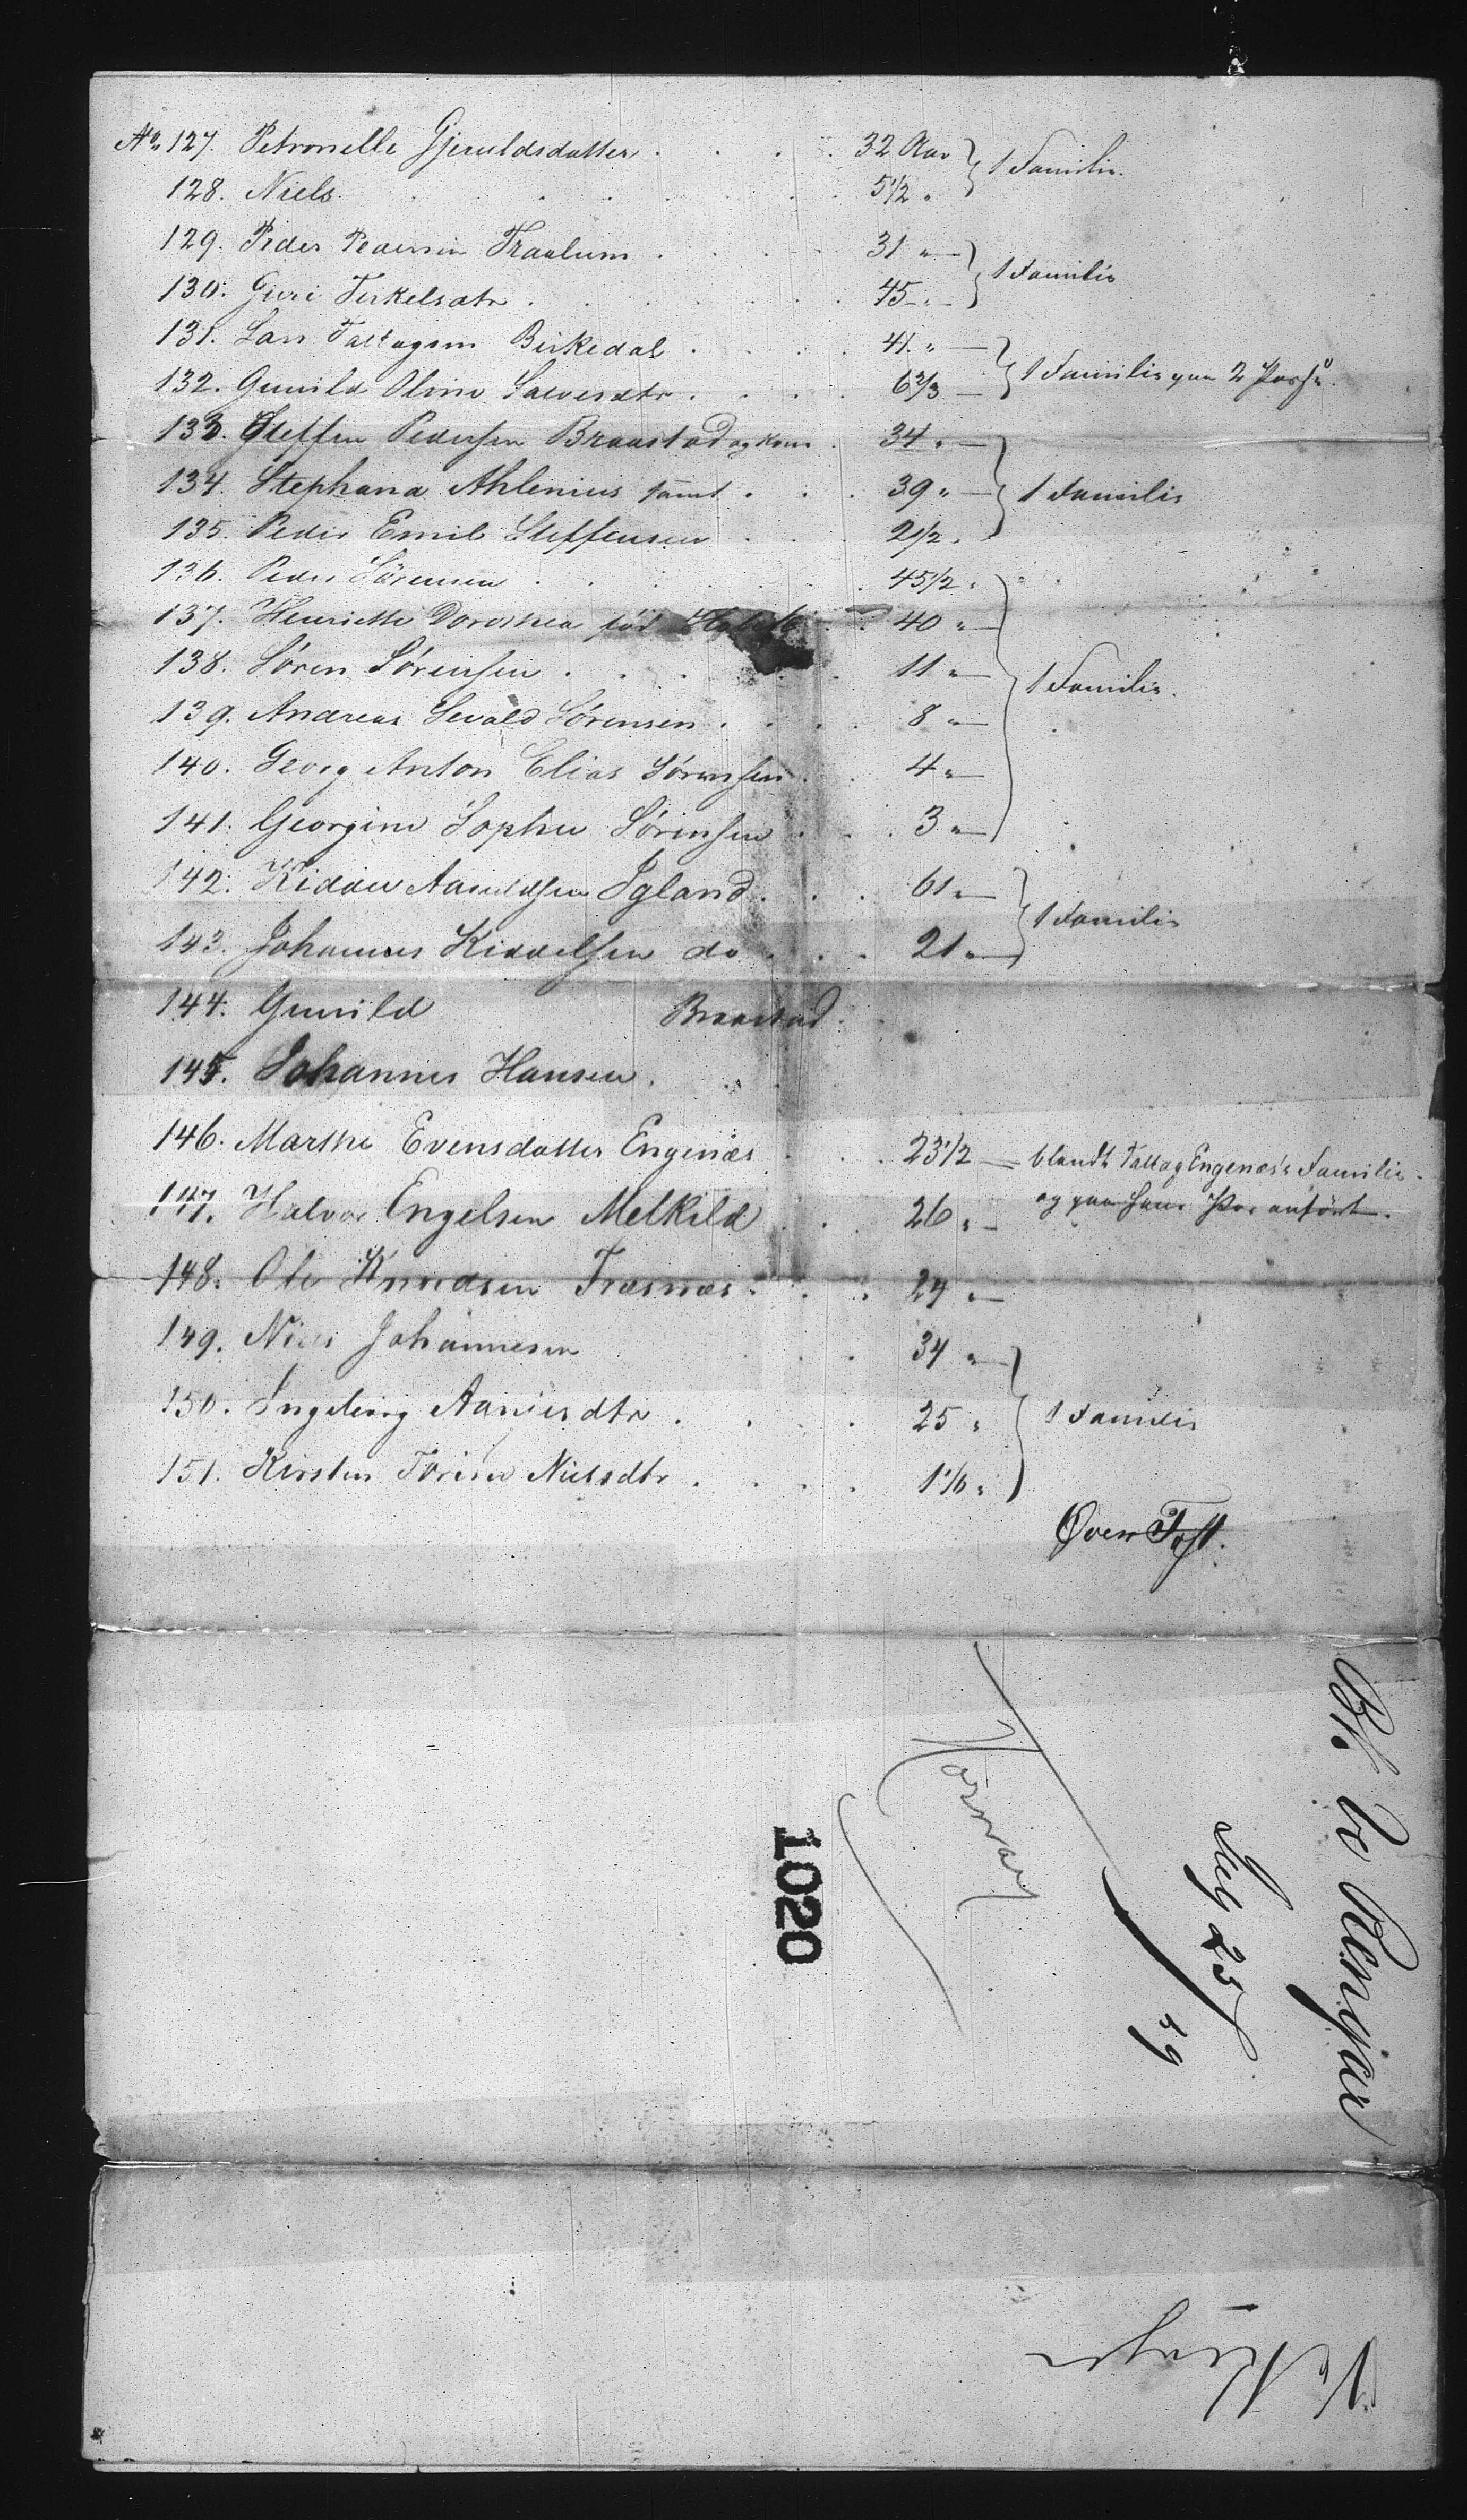 No. 127. Petronelle Gjeruldsdatter . . . . 32 Aar } 1 Familie.
128. Niels . . . . . . . 5 1/2 "
129. Peder Pedersen Fraalum . . . 31 " — } 1 Familie
130. Guri Terkelsdtr . . . . . . 45 " —
131. Lars Taltagsen Birkedal . . . . 41. " — } 1 Familie paa 2
132. Gunild Oline Salvesdtr . . . . 6 2/3 —
133. Steffen Pedersen Braastad og Kone . 34 " —
134. Stephana Ahlenius samt . . . 39 " — } 1 Familie
135. Peder Emil Steffensen . . . 2 1/2 "
136. Peder Sörensen . . . . . 45 1/2 "
137. Henriette Dorothea född . . 40 " —
138. Sören Sörensen . . . . . 11 " — } 1 Familie.
139. Andreas Sevald Sörensen . . . . 8 " —
140. Georg Anton Elias Sörensen . . 4 " —
141. Georgine Sophie Sörensen . . . 3 " —
142. Kiddel Aanuldsen Igland . . . 61 " — } 1 Familie
143. Johannes Kiddelsen do . . . 21 " —
144. Gunild Braastad .
145. Johannes Hansen .
146. Marthe Evensdatter Engenæs . . . 23 1/2 — blandt Taltag Engenæs's Familie
147. Halvor Engelsen Melkild . . . 26 " — og paa hans Pas anfört.
148. Ole Knudsen Træsnæs . . . 24 " —
149. Niels Johannesen . . . 34 " —
150. Ingeborg Aanesdtr . . . . 25 " } 1 Familie
151. Kirsten Torine Nielsdtr . . . . 1 1/6 "
Oven Toft.
Bk Ve Kenyar
Sep 25
59
Norway
1020